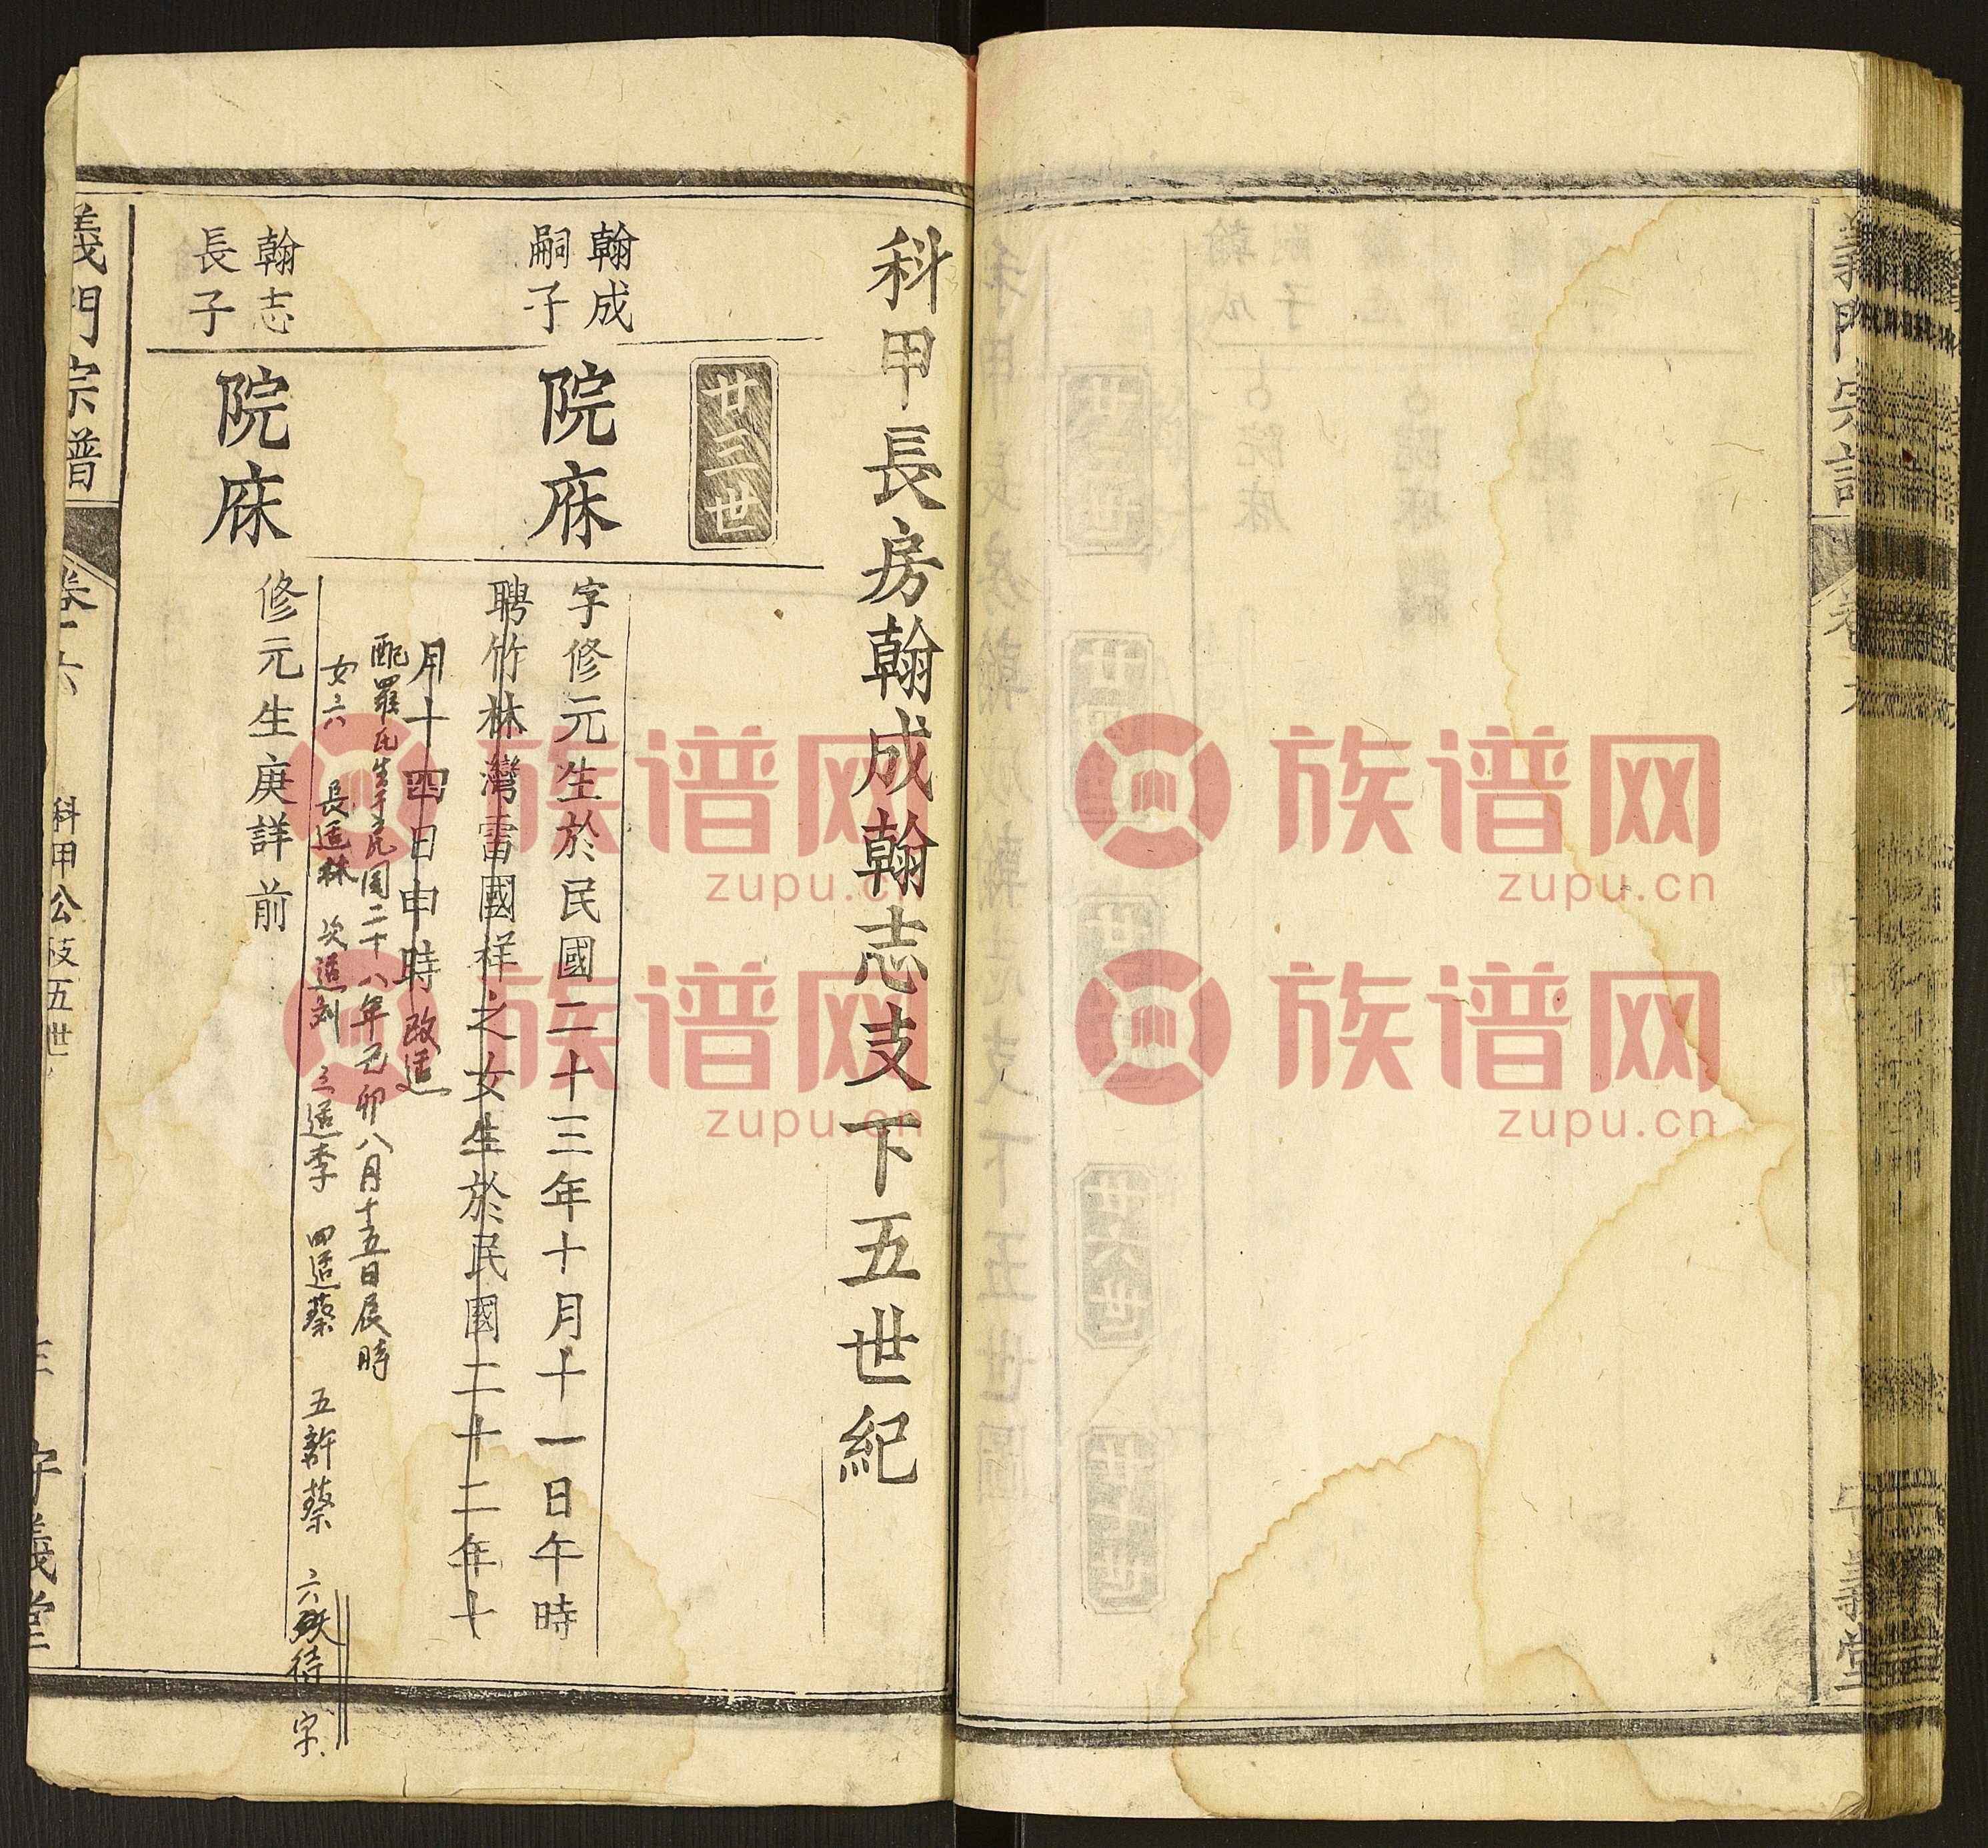 義門宗譜
科甲長房翰成翰志支下五世紀
廿三世
翰成
嗣子
院庥
字修元生於民國二十三年十月十一日午時
聘竹林灣雷國祥之女生於民國二十二年十
月十四日申時 改适
配羅氏生于民国二十八年己卯八月十五日辰時
女六 長适林 次适刘 三适李 四适蔡 五許蔡 六 待字
翰志
長子
院庥
修元生庚詳前
義門宗譜
卷十六
科甲公支五世
守義堂
族谱网
zupu.cn
族谱网
zupu.cn
族谱网
zupu.cn
族谱网
zupu.cn